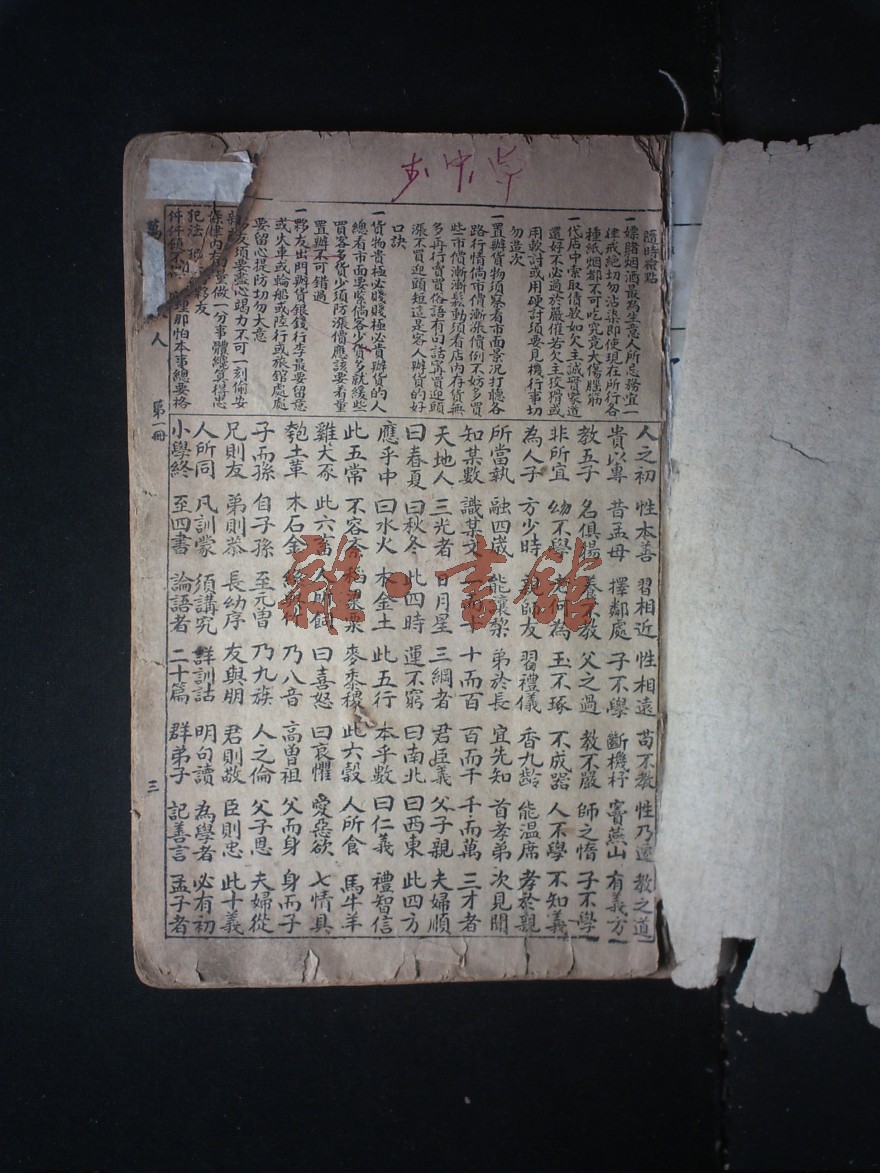 隨時檢點
一嫖賭烟酒最為生意人所忌務宜一
律戒絕切勿沾染即便現在所行各
種紙烟都不可吃究竟大傷腦筋
一代店中索取債欵如欠主誠實家道
還好不必過於嚴催若欠主狡猾或
用軟討或用硬討須要見機行事切
勿造次
一置辦貨物須察看市面景況打聽各
路行情倘市價漸漲價例不妨多買
些市價漸漸鬆動須看店內存貨無
多再行賣買俗語有句話寗買迎頭
漲不買迎頭短這是客人辦貨的好
口訣
一貨物貴極必賤賤極必貴辦貨的人
總看市面要緊倘客少貨多就緩些
買客多貨少須防漲價應該要着重
置辦不可錯過
一夥友出門辦貨銀錢行李最要留意
或火車或輪船或陸行或旅舘處處
要留心提防切勿大意
友須要盡心竭力不可一刻偷安
條律內有 做一分事體纔算得忠
犯法 夥友
件件 理那怕本事總要格
人之初 性本善 習相近 性相遠 苟不教 性乃遷 教之道
貴以專 昔孟母 擇鄰處 子不學 斷機杼 竇燕山 有義方
教五子 名俱揚 養不教 父之過 教不嚴 師之惰 子不學
非所宜 幼不學 老何為 玉不琢 不成器 人不學 不知義
為人子 方少時 親師友 習禮儀 香九齡 能溫席 孝於親
所當執 融四歲 能讓梨 弟於長 宜先知 首孝弟 次見聞
知某數 識某文 一而十 十而百 百而千 千而萬 三才者
天地人 三光者 日月星 三綱者 君臣義 父子親 夫婦順
曰春夏 曰秋冬 此四時 運不窮 曰南北 曰西東 此四方
應乎中 曰水火 木金土 此五行 本乎數 曰仁義 禮智信
此五常 不容紊 稻粱菽 麥黍稷 此六穀 人所食 馬牛羊
雞犬豕 此六畜 人所飼 曰喜怒 曰哀懼 愛惡欲 七情具
匏土革 木石金 絲與竹 乃八音 高曾祖 父而身 身而子
子而孫 自子孫 至元曾 乃九族 人之倫 父子恩 夫婦從
兄則友 弟則恭 長幼序 友與朋 君則敬 臣則忠 此十義
人所同 凡訓蒙 須講究 詳訓詁 明句讀 為學者 必有初
小學終 至四書 論語者 二十篇 群弟子 記善言 孟子者
萬 人 第一冊 三
雜·書館